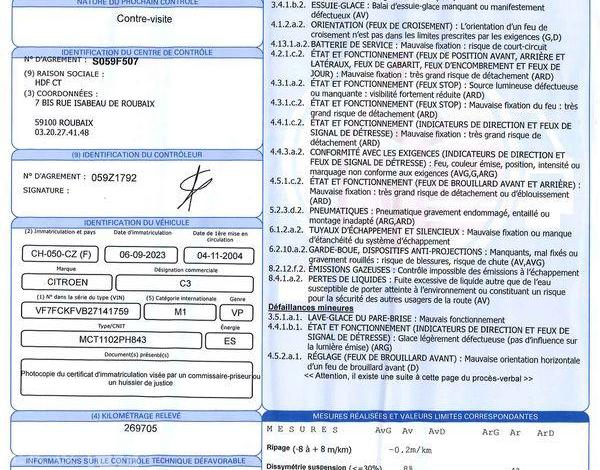 NATURE DU PROCHAIN CONTRÔLE
Contre-visite
IDENTIFICATION DU CENTRE DE CONTRÔLE
N° D'AGREMENT : S059F507
(9) RAISON SOCIALE :
HDF CT
(3) COORDONNÉES :
7 BIS RUE ISABEAU DE ROUBAIX
59100 ROUBAIX
03.20.27.41.48
(9) IDENTIFICATION DU CONTRÔLEUR
N° D'AGREMENT : 059Z1792
SIGNATURE :
IDENTIFICATION DU VÉHICULE
(2) Immatriculation et pays Date d'immatriculation Date de 1ère mise en circulation
CH-050-CZ (F) 06-09-2023 04-11-2004
Marque Désignation commerciale
CITROEN C3
(1) N° dans la série du type (VIN) (5) Catégorie internationale Genre
VF7FCKFVB27141759 M1 VP
Type/CNIT Énergie
MCT1102PH843 ES
Document(s) présenté(s)
Photocopie du certificat d'immatriculation visée par un commissaire-priseur ou
un huissier de justice
(4) KILOMÉTRAGE RELEVÉ
269705
INFORMATIONS SUR LE CONTRÔLE TECHNIQUE DÉFAVORABLE
3.4.1.b.2. ESSUIE-GLACE : Balai d'essuie-glace manquant ou manifestement
défectueux (AV)
4.1.2.a.2. ORIENTATION (FEUX DE CROISEMENT) : L'orientation d'un feu de
croisement n'est pas dans les limites prescrites par les exigences (G,D)
4.13.1.a.2. BATTERIE DE SERVICE : Mauvaise fixation : risque de court-circuit
4.2.1.c.2. ÉTAT ET FONCTIONNEMENT (FEUX DE POSITION AVANT, ARRIÈRE ET
LATÉRAUX, FEUX DE GABARIT, FEUX D'ENCOMBREMENT ET FEUX DE
JOUR) : Mauvaise fixation : très grand risque de détachement (ARD)
4.3.1.a.2. ÉTAT ET FONCTIONNEMENT (FEUX STOP) : Source lumineuse défectueuse
ou manquante : visibilité fortement réduite (ARD)
4.3.1.c.2. ÉTAT ET FONCTIONNEMENT (FEUX STOP) : Mauvaise fixation du feu : très
grand risque de détachement (ARD)
4.4.1.c.2. ÉTAT ET FONCTIONNEMENT (INDICATEURS DE DIRECTION ET FEUX DE
SIGNAL DE DÉTRESSE) : Mauvaise fixation : très grand risque de
détachement (ARD)
4.4.3.a.2. CONFORMITÉ AVEC LES EXIGENCES (INDICATEURS DE DIRECTION ET
FEUX DE SIGNAL DE DÉTRESSE) : Feu, couleur émise, position, intensité ou
marquage non conforme aux exigences (AVG,G,ARG)
4.5.1.c.2. ÉTAT ET FONCTIONNEMENT (FEUX DE BROUILLARD AVANT ET ARRIÈRE) :
Mauvaise fixation : très grand risque de détachement ou d'éblouissement
(ARD)
5.2.3.d.2. PNEUMATIQUES : Pneumatique gravement endommagé, entaillé ou
montage inadapté (ARG,ARD)
6.1.2.a.2. TUYAUX D'ÉCHAPPEMENT ET SILENCIEUX : Mauvaise fixation ou manque
d'étanchéité du système d'échappement
6.2.10.a.2. GARDE-BOUE, DISPOSITIFS ANTI-PROJECTIONS : Manquants, mal fixés ou
gravement rouillés : risque de blessures, risque de chute (AV,AVG)
8.2.12.f.2. ÉMISSIONS GAZEUSES : Contrôle impossible des émissions à l'échappement
8.4.1.a.2. PERTES DE LIQUIDES : Fuite excessive de liquide autre que de l'eau
susceptible de porter atteinte à l'environnement ou constituant un risque
pour la sécurité des autres usagers de la route (AV)
Défaillances mineures
3.5.1.a.1. LAVE-GLACE DU PARE-BRISE : Mauvais fonctionnement
4.4.1.b.1. ÉTAT ET FONCTIONNEMENT (INDICATEURS DE DIRECTION ET FEUX DE
SIGNAL DE DÉTRESSE) : Glace légèrement défectueuse (pas d'influence sur
la lumière émise) (ARG)
4.5.2.a.1. RÉGLAGE (FEUX DE BROUILLARD AVANT) : Mauvaise orientation horizontale
d'un feu de brouillard avant (D)
<< Attention, il existe une suite à cette page du procès-verbal >>
MESURES RÉALISÉES ET VALEURS LIMITES CORRESPONDANTES
MESURES AvG Av AvD ArG Ar ArD
Ripage (-8 à + 8 m/km) -0.2m/km
Dissymétrie suspension (<=30%)